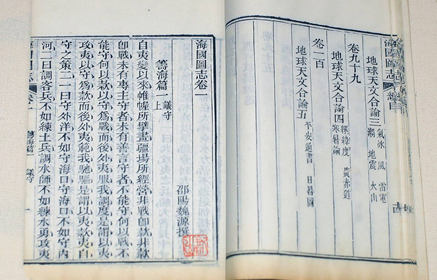 海國圖志 卷目
地球天文合論三 氣 氷 風 雷電
潮 地震 火山
卷九十九
地球天文合論四 經緯度 黃赤道
寒暑論
卷一百
地球天文合論五 平安通書 日晷圖
海國圖志卷一
邵陽魏源撰
籌海篇一 議守上
自夷變以來帷幄所擘畫疆場所經營非戰即款非款
即戰未有專主守者未有善言守者不能守何以戰不
能守何以款以守為戰而後外夷服我調度是謂以夷
攻夷以守為款而後外夷範我馳驅是謂以夷款夷自
守之策二一曰守外洋不如守海口守海口不如守內
河二曰調客兵不如練土兵調水師不如練水勇攻夷